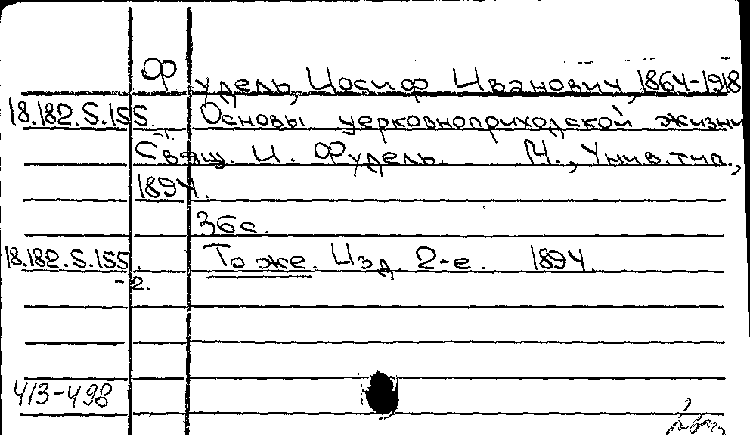 Фудель, Иосиф Иванович, 1864-1918
18.182.5.155. Основы церковноприходской жизни
Свящ. И. Фудель. М., Унив. тип.,
1894.
36с.
18.182.5.155 То же. Изд. 2-е. 1894.
-2.
413-498